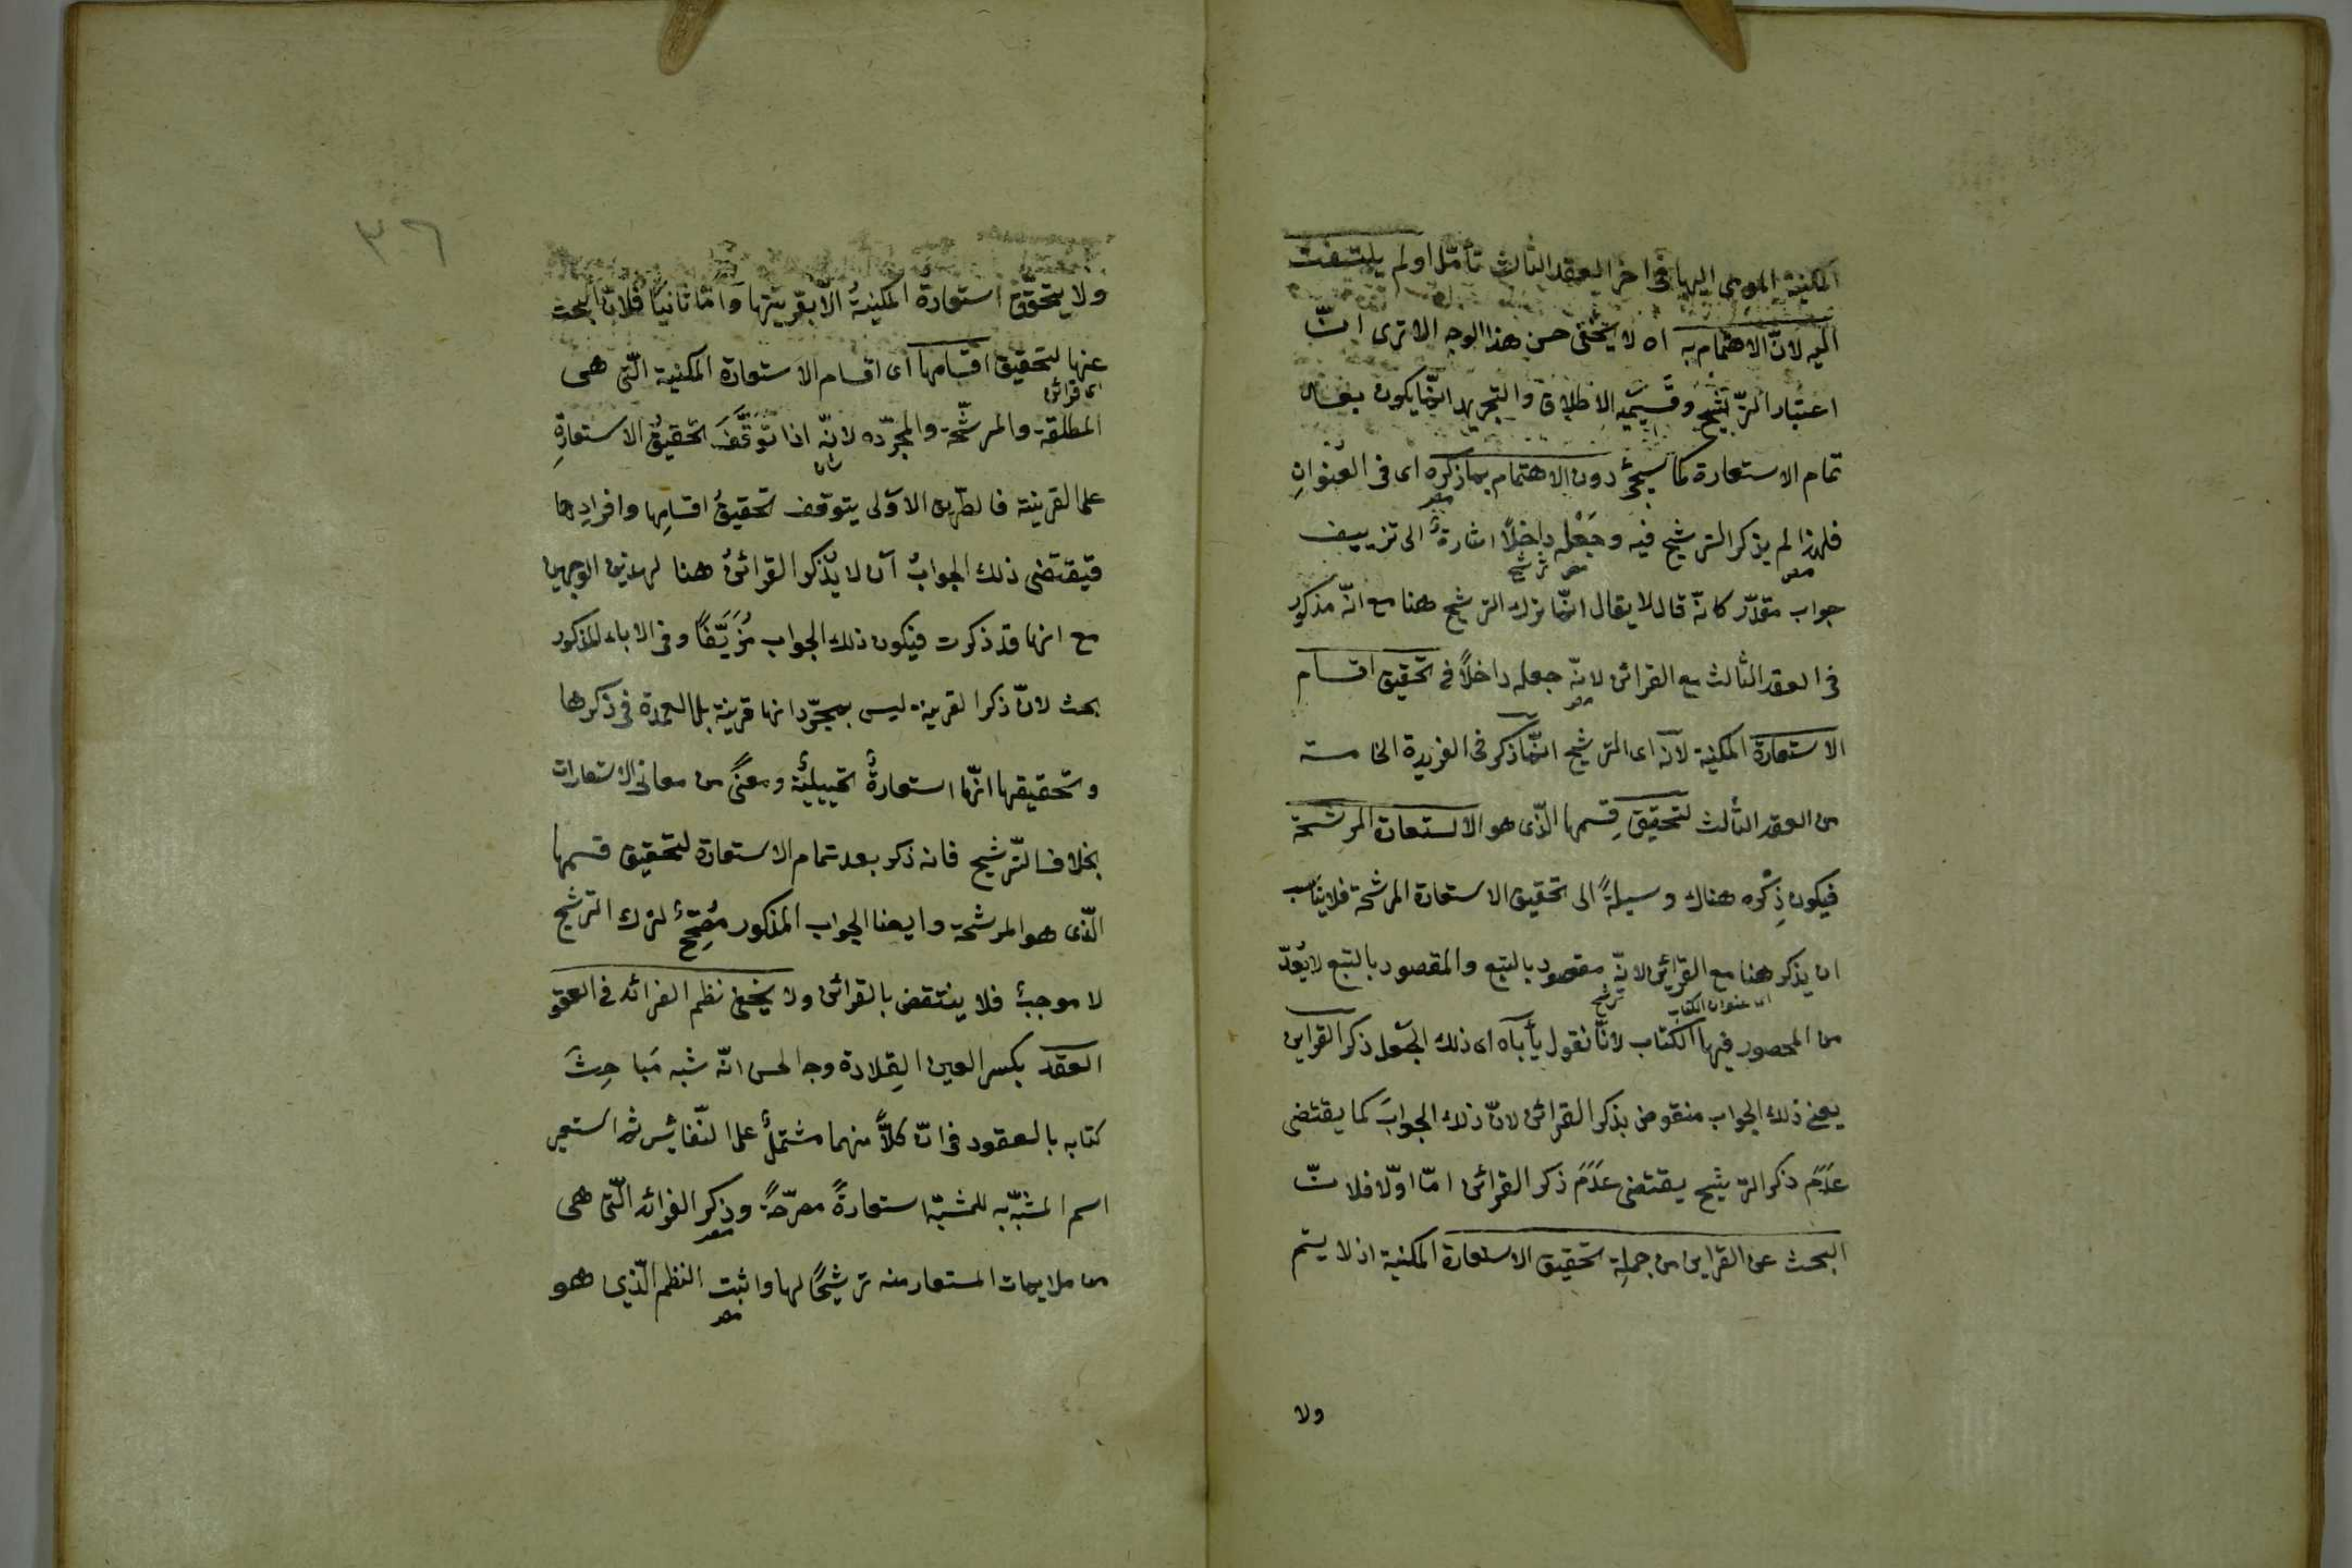 المكنية المومى اليها فى اخر العقد الثالث تأمّل او لم يلتفت
اليه لانّ الاهتمام به اه لا يخفى حسن هذا الوجه الا ترى انّ
اعتبار الترشيح وقسيميه الاطلاق والتجريد انّما يكون بعد
تمام الاستعارة كما سيجئ دون الاهتمام بما ذكره اى فى العنوانِ
مصر
فلهذا لم يذكر الترشيح فيه وجَعْله داخلاً اشارةٌ الى تزييف
مصر
مصر ترشيح
جواب مقدّر كانّه قال لا يقال انّما ترك الترشيح هنا مع انّه مذكور
فى العقد الثالث مع القرائن لانّه جعله داخلاً فى تحقيق اقسام
مصر
الاستعارة المكنية لانه اى الترشيح انّما ذكر فى الفريدة الخامسة
من العقد الثالث لتحقيق قِسمها الّذى هو الاستعارة المرشحة
فيكون ذِكْره هناك وسيلةً الى تحقيق الاستعارة المرشحة فلا يناسب
ان يذكر هنا مع القرائن لانّه مقصود بالتبع والمقصود بالتبع لا يُعدّ
ترشيح
اى عنوان الكتاب
من المحصور فيها الكتاب لانّا نقول يأباه اى ذلك الجعل ذكر القراين
يعنى ذلك الجواب منقوض بذكر القرائن لانّ ذلك الجوابَ كما يقتضى
عَدَمَ ذكر الترشيح يقتضى عَدَمَ ذكر القرائن امّا اوّلا فلانّ
البحث عن القراين من جملِة تحقيق الاستعارة المكنية اذ لا يتم
ولا
٣٦
ولا يتحقّق استعارة المكنيةُ الاّ بقرينتها وامّا ثانيًا فلانّ البحث
عنها لتحقيق اقسامها اى اقسام الاستعارة المكنية الّتى هى
اى قرائن
المطلقة والمرشّحة والمجرّده لانّه اذا تَوَقَّفَ تحقيقُ الاستعارةِ
شان
على القرينة فالطريق الاوّلى يتوقّف تحقيقُ اقسامِها وافرادِها
فيقتضى ذلك الجوابُ ان لا يُذْكر القرائنُ هنا لهذين الوجهين
مع انها قد ذكرت فيكون ذلك الجواب مُزَيَّفًا وفى الاباء المذكور
بحث لانّ ذكر القرينة ليس بمجرّد انها قرينة بل العمدة فى ذكرها
وتحقيقها انّها استعارةٌ تخييليةٌ ومعنًى من معانى الاستعارات
بخلاف الترّشيح فانه ذكر بعد تمام الاستعارة لتحقيق قسمها
الّذى هو المرشحة وايضا الجواب المذكور مُصَحِّحٌ لترك الترشيح
لا موجبٌ فلا ينتقض بالقرائن ولا يخفى نظم الفرائد فى العقو
العقد بكسر العين القِلادة وجه الحسن انّه شبه مَباحِثَ
كتابه بالعقود فى انّ كلاًّ منهما مشتملٌ على النّفائس ثم استعير
اسم المشبّه به للمشبّه استعارةً مصرّحةً وذِكر الفرائد الّتى هى
مصر
من ملايمات المستعار منه ترشيحًا لها واثبت النظم الّذى هو
مصر